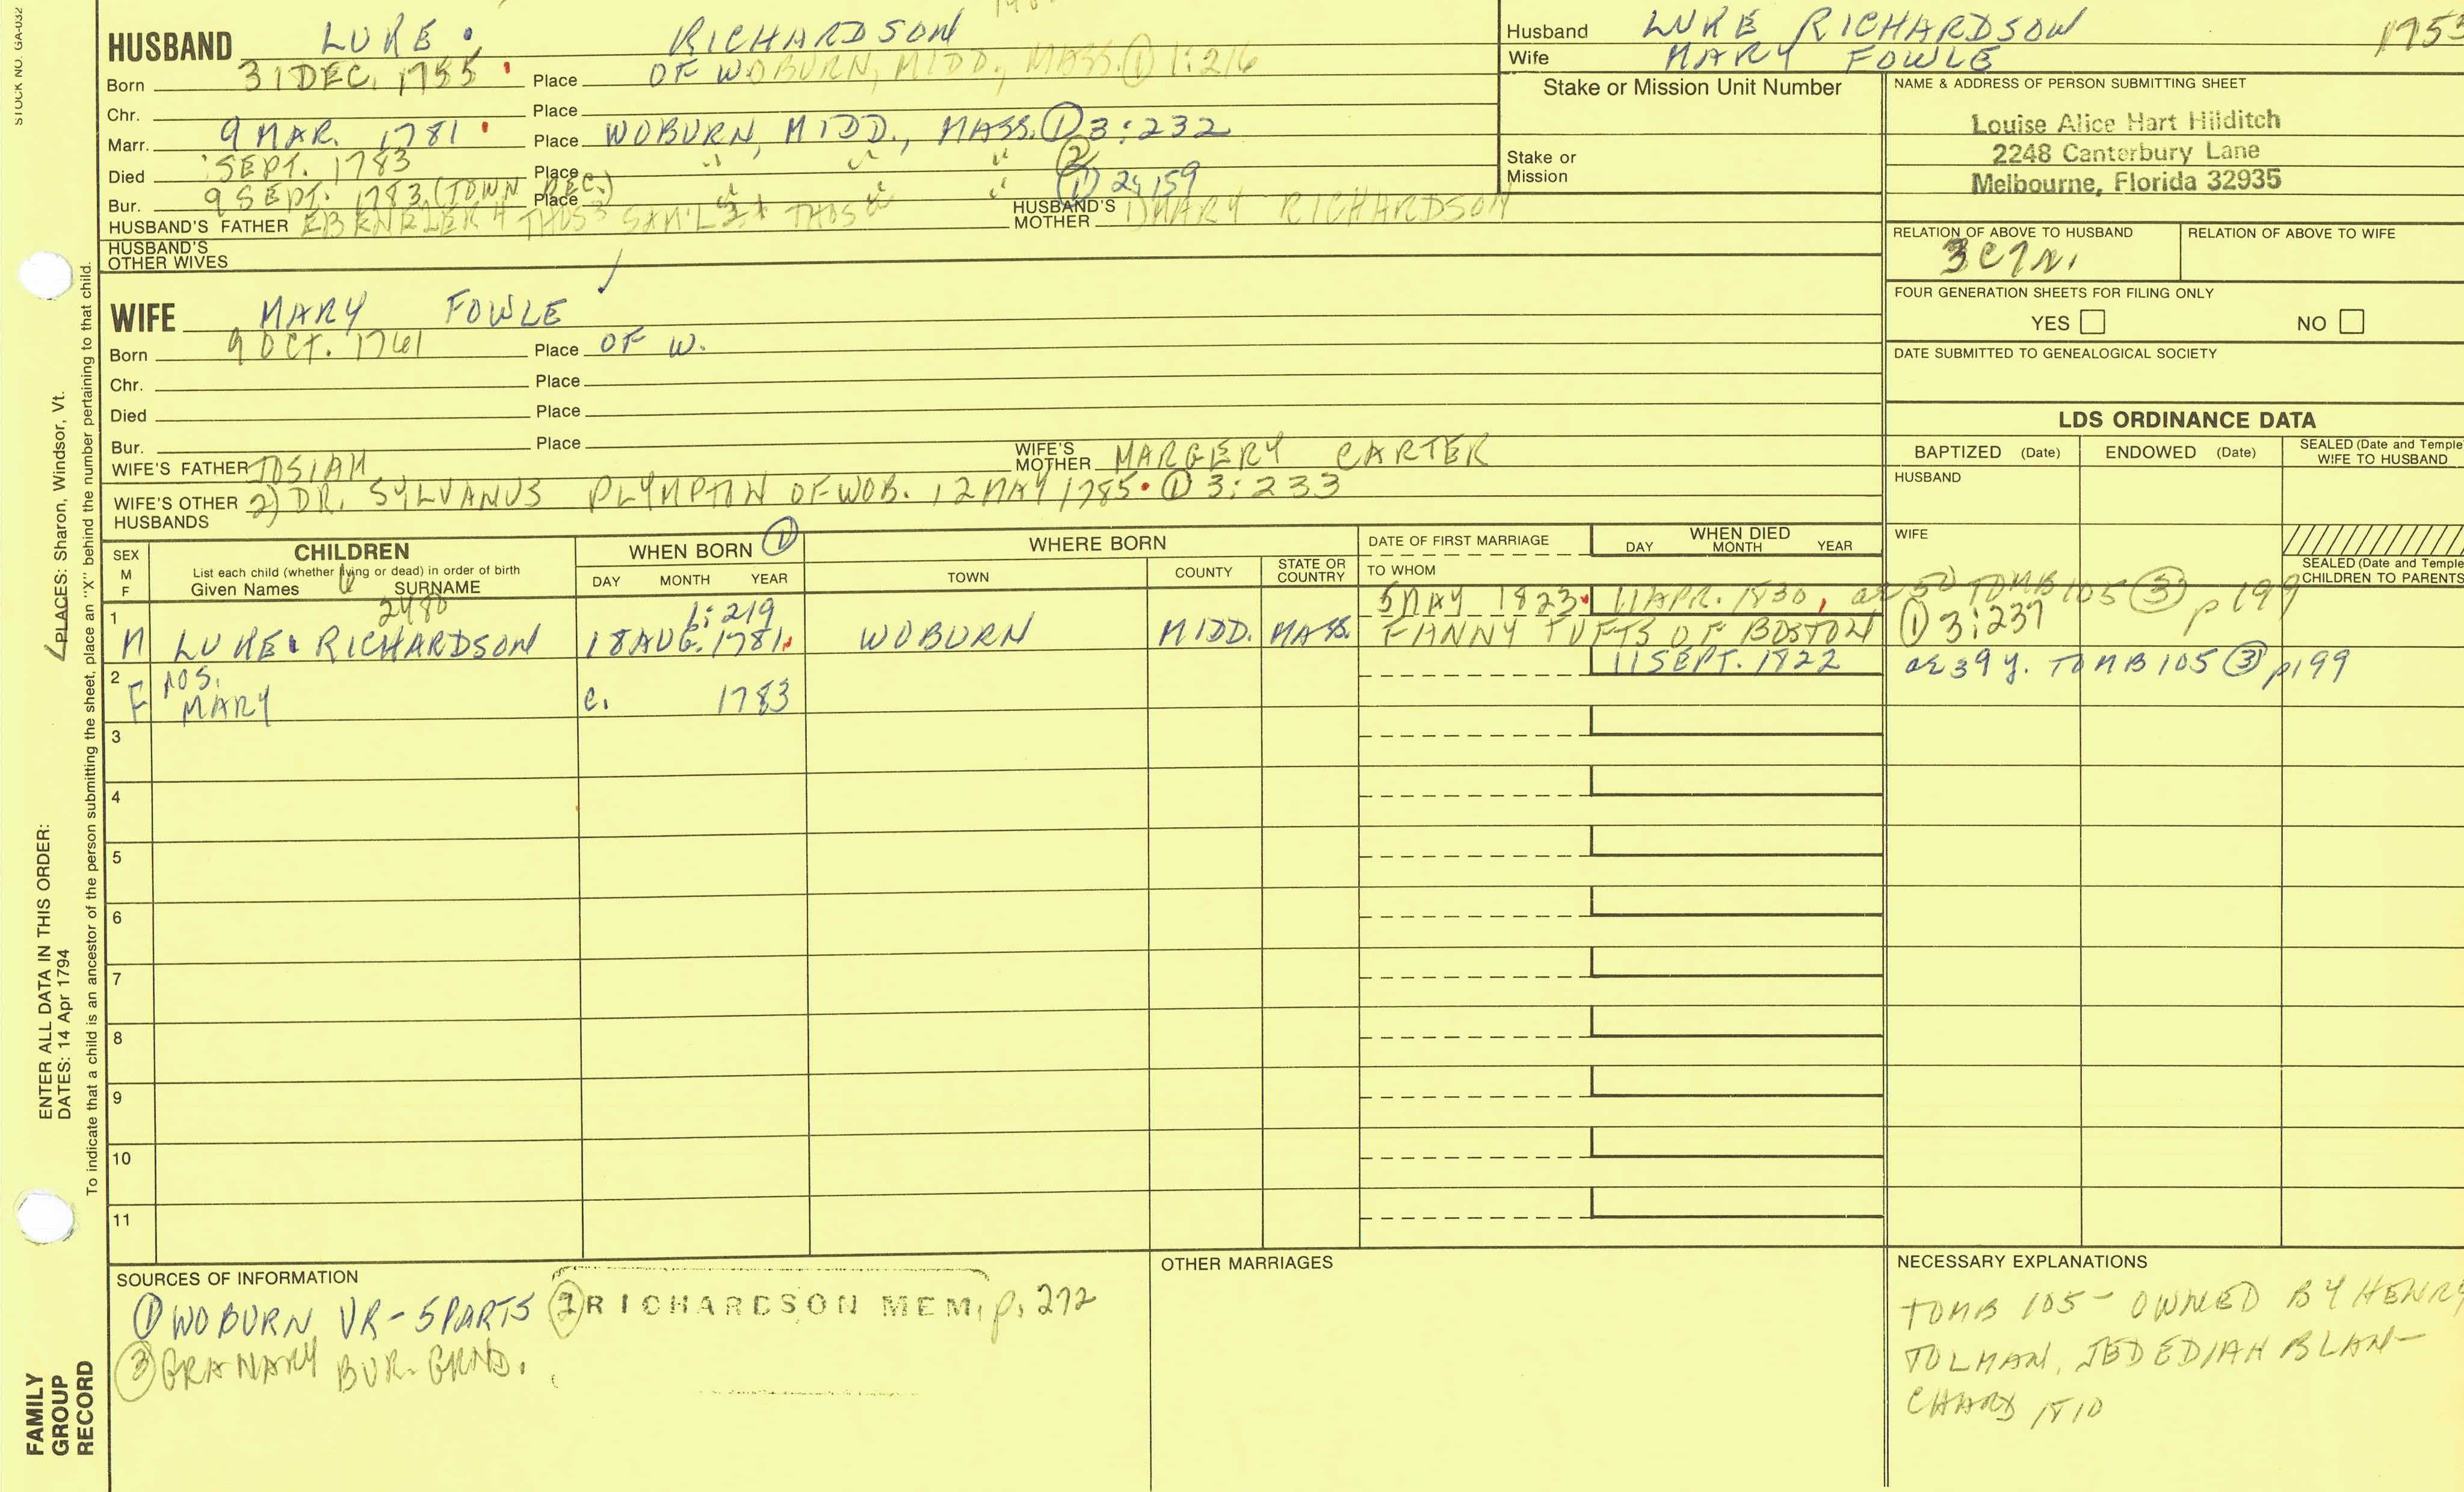 STOCK NO. GA-032
HUSBAND LUKE RICHARDSON
Born 31 DEC. 1755 Place OF WOBURN, MIDD., MASS. ① 1:216
Chr. Place
Marr. 9 MAR. 1781 Place WOBURN, MIDD., MASS. ① 3:232
Died SEPT. 1783 Place " " " ②
Bur. 9 SEPT. 1783 (TOWN REC.) Place " " " ① 2:159
HUSBAND'S FATHER EBENEZER 4 THOS3 SAM'L2+ THOS HUSBAND'S MOTHER MARY RICHARDSON
HUSBAND'S OTHER WIVES
WIFE MARY FOWLE
Born 9 OCT. 1761 Place OF W.
Chr. Place
Died Place
Bur. Place
WIFE'S FATHER JOSIAH WIFE'S MOTHER MARGERY CARTER
WIFE'S OTHER HUSBANDS 2) DR. SYLVANUS PLYMPTON OF WOB. 12 MAY 1785 ① 3:233
Husband LUKE RICHARDSON
Wife MARY FOWLE
1753
Stake or Mission Unit Number
Stake or Mission
NAME & ADDRESS OF PERSON SUBMITTING SHEET
Louise Alice Hart Hilditch
2248 Canterbury Lane
Melbourne, Florida 32935
RELATION OF ABOVE TO HUSBAND RELATION OF ABOVE TO WIFE
3C7R.
FOUR GENERATION SHEETS FOR FILING ONLY
YES NO
DATE SUBMITTED TO GENEALOGICAL SOCIETY
LDS ORDINANCE DATA
BAPTIZED (Date) ENDOWED (Date) SEALED (Date and Temple) WIFE TO HUSBAND
HUSBAND
WIFE
SEALED (Date and Temple) CHILDREN TO PARENTS
SEX M F
CHILDREN
List each child (whether living or dead) in order of birth
Given Names SURNAME
WHEN BORN ①
DAY MONTH YEAR
WHERE BORN
TOWN COUNTY STATE OR COUNTRY
DATE OF FIRST MARRIAGE
TO WHOM
WHEN DIED
DAY MONTH YEAR
2480 1:219 5 MAY 1823 11 APR. 1830, ae 50 TOMB 105 ③ p 199
1 M LUKE RICHARDSON 18 AUG. 1781 WOBURN MIDD. MASS. FANNY TUFTS OF BOSTON ① 3:237
11 SEPT. 1822 ae 39 y. TOMB 105 ③ p199
2 F POS. MARY c. 1783
3
4
5
6
7
8
9
10
11
SOURCES OF INFORMATION
① WOBURN VR - 5 PARTS ② RICHARDSON MEM. p. 272
③ GRANARY BUR. GRND.
OTHER MARRIAGES
NECESSARY EXPLANATIONS
TOMB 105 - OWNED BY HENRY
TOLMAN, JEDEDIAH BLAN-
CHARD 1810
PLACES: Sharon, Windsor, Vt.
ENTER ALL DATA IN THIS ORDER:
DATES: 14 Apr 1794
To indicate that a child is an ancestor of the person submitting the sheet, place an "X" behind the number pertaining to that child.
FAMILY
GROUP
RECORD